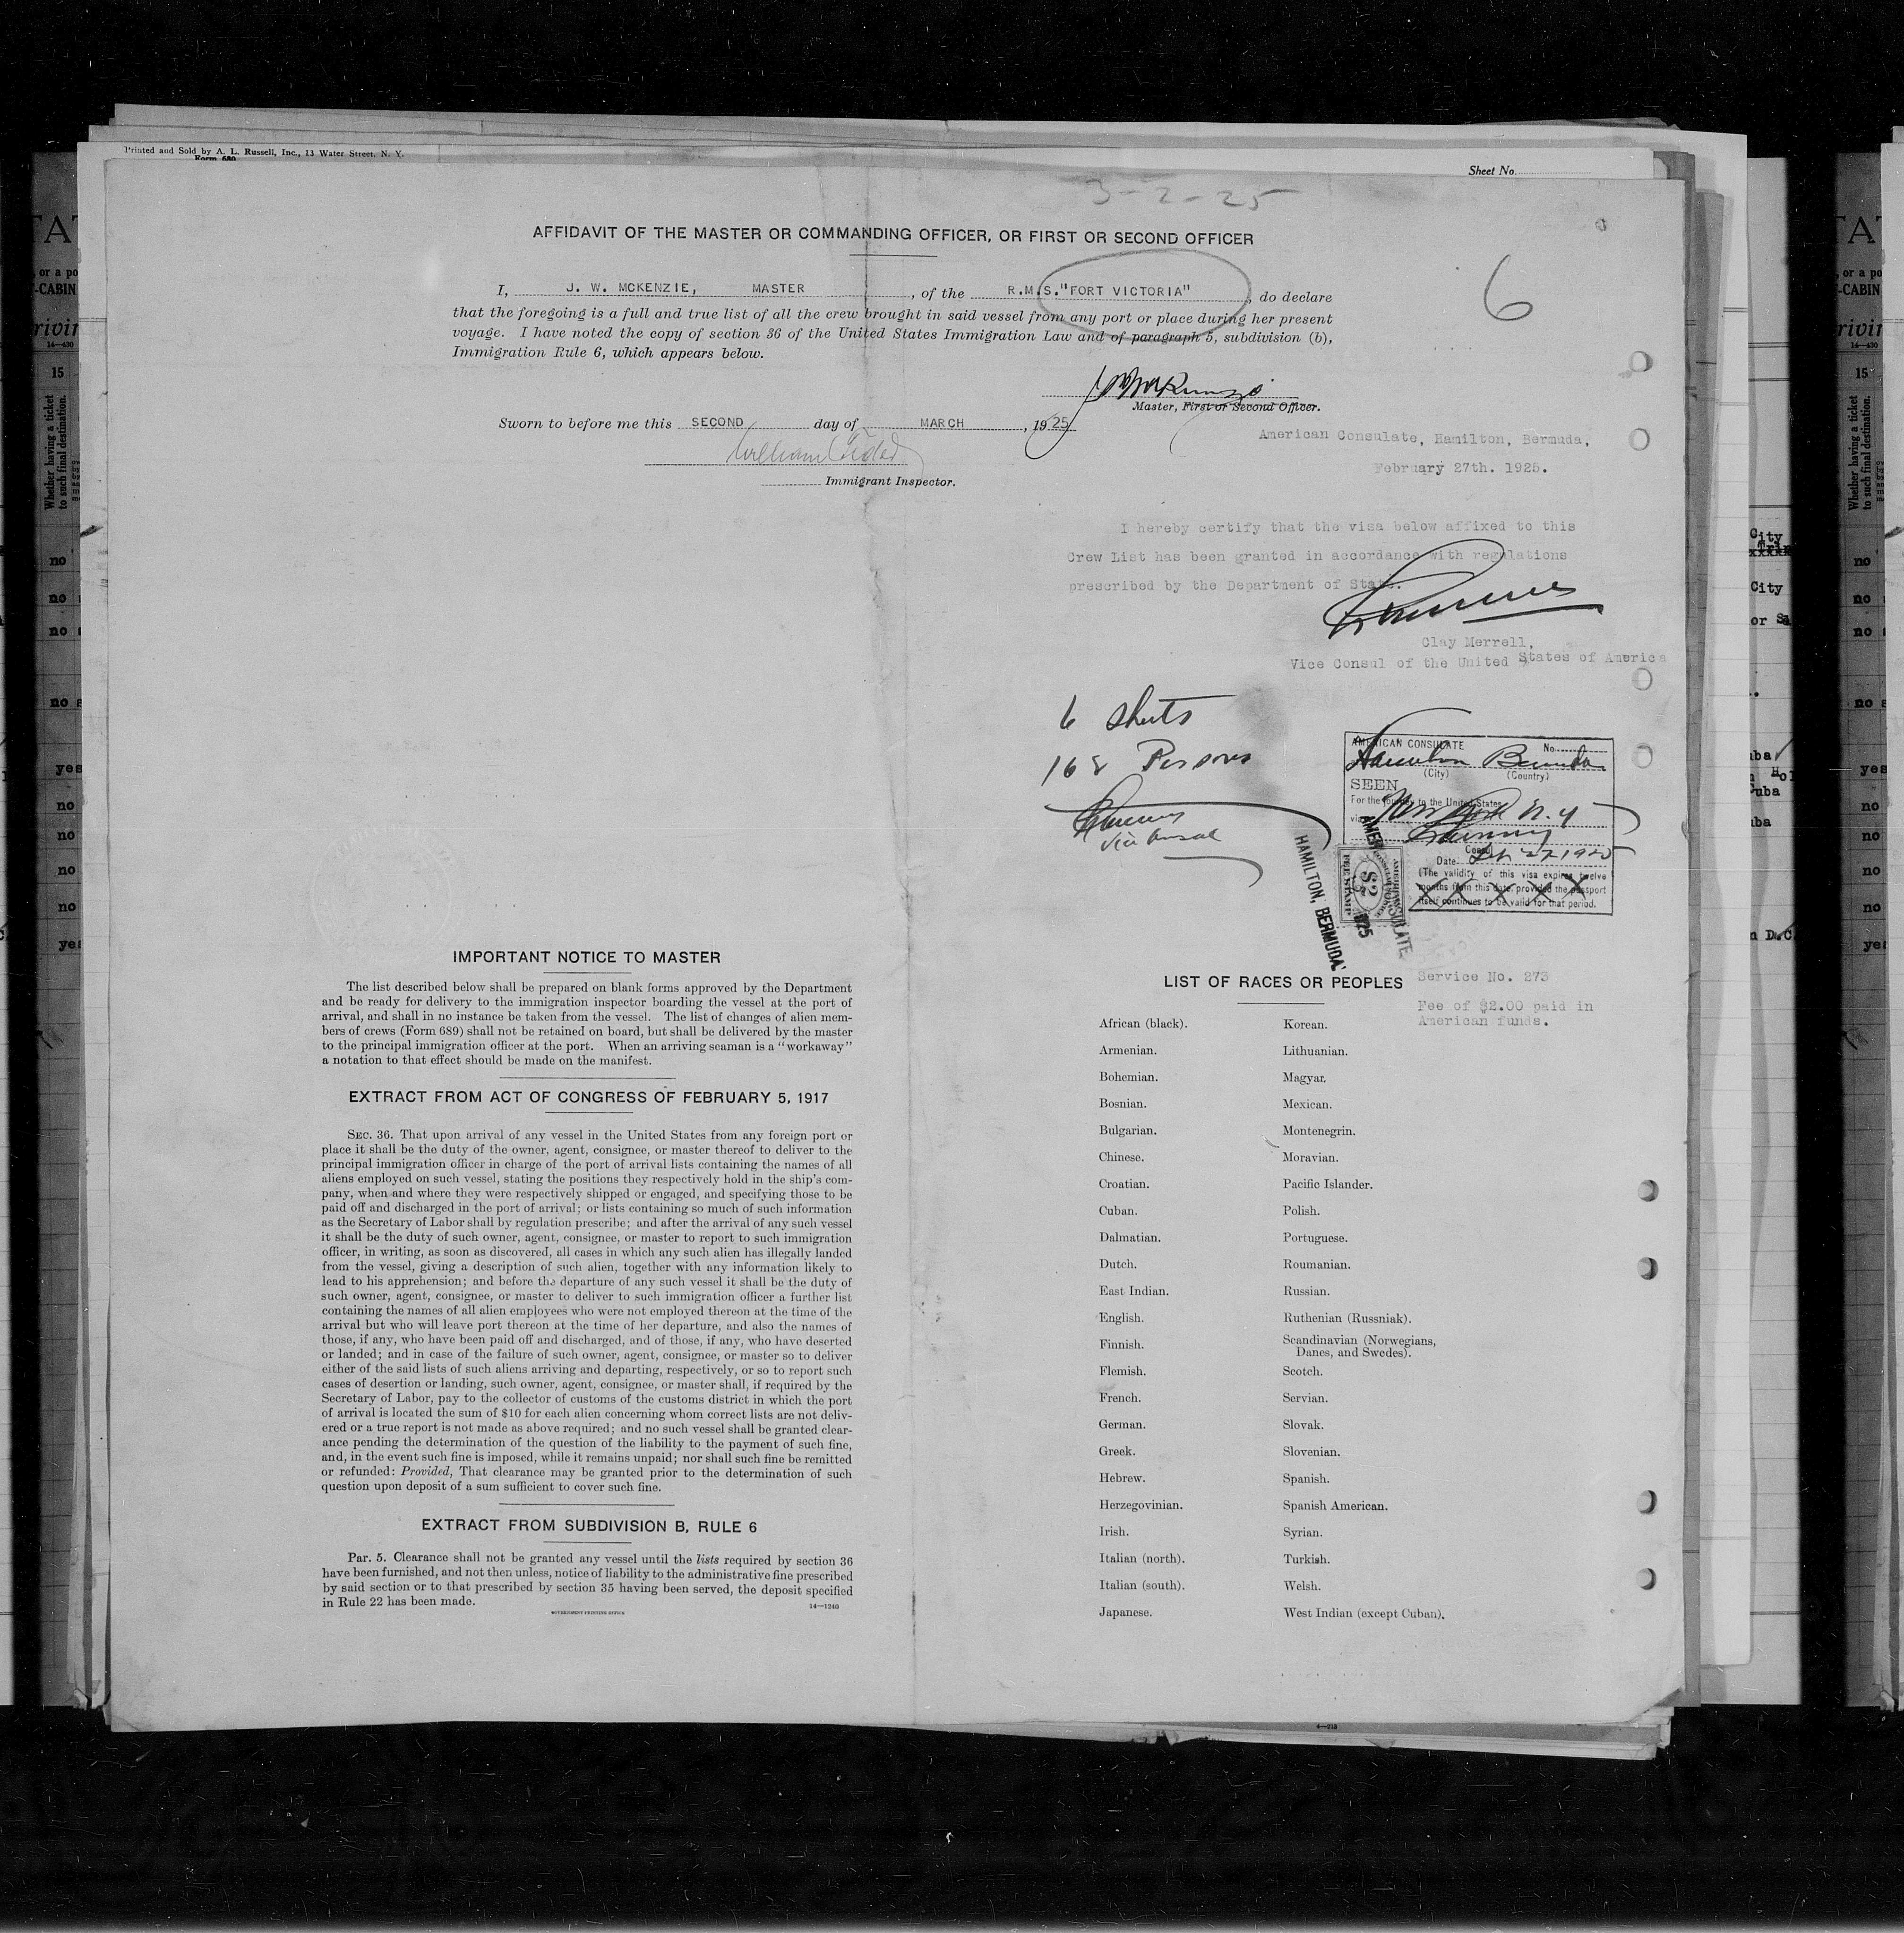 Printed and Sold by A. L. Russell, Inc., 13 Water Street, N. Y.
Form 689
Sheet No.
3-2-25
AFFIDAVIT OF THE MASTER OR COMMANDING OFFICER, OR FIRST OR SECOND OFFICER
6
I, J. W. MCKENZIE, MASTER, of the R.M.S."FORT VICTORIA", do declare
that the foregoing is a full and true list of all the crew brought in said vessel from any port or place during her present
voyage. I have noted the copy of section 36 of the United States Immigration Law and of paragraph 5, subdivision (b),
Immigration Rule 6, which appears below.
Master, First or Second Officer.
Sworn to before me this SECOND day of MARCH, 1925
William
Immigrant Inspector.
American Consulate, Hamilton, Bermuda,
February 27th. 1925.
I hereby certify that the visa below affixed to this
Crew List has been granted in accordance with regulations
prescribed by the Department of State.
Clay Merrell,
Vice Consul of the United States of America
6 Sheets
168 Persons
Vice Consul
AMERICAN CONSULATE No.
Hamilton Bermuda
(City) (Country)
SEEN
For the journey to the United States
via New York N.Y
Consul
Date Feb 27 1925
(The validity of this visa expires twelve
months from this date, provided the passport
itself continues to be valid for that period.
AMERICAN CONSULATE
HAMILTON, BERMUDA.
$2
FEE STAMP
Service No. 273
Fee of $2.00 paid in
American funds.
IMPORTANT NOTICE TO MASTER
The list described below shall be prepared on blank forms approved by the Department
and be ready for delivery to the immigration inspector boarding the vessel at the port of
arrival, and shall in no instance be taken from the vessel. The list of changes of alien mem-
bers of crews (Form 689) shall not be retained on board, but shall be delivered by the master
to the principal immigration officer at the port. When an arriving seaman is a "workaway"
a notation to that effect should be made on the manifest.
EXTRACT FROM ACT OF CONGRESS OF FEBRUARY 5, 1917
SEC. 36. That upon arrival of any vessel in the United States from any foreign port or
place it shall be the duty of the owner, agent, consignee, or master thereof to deliver to the
principal immigration officer in charge of the port of arrival lists containing the names of all
aliens employed on such vessel, stating the positions they respectively hold in the ship's com-
pany, when and where they were respectively shipped or engaged, and specifying those to be
paid off and discharged in the port of arrival; or lists containing so much of such information
as the Secretary of Labor shall by regulation prescribe; and after the arrival of any such vessel
it shall be the duty of such owner, agent, consignee, or master to report to such immigration
officer, in writing, as soon as discovered, all cases in which any such alien has illegally landed
from the vessel, giving a description of such alien, together with any information likely to
lead to his apprehension; and before the departure of any such vessel it shall be the duty of
such owner, agent, consignee, or master to deliver to such immigration officer a further list
containing the names of all alien employees who were not employed thereon at the time of the
arrival but who will leave port thereon at the time of her departure, and also the names of
those, if any, who have been paid off and discharged, and of those, if any, who have deserted
or landed; and in case of the failure of such owner, agent, consignee, or master so to deliver
either of the said lists of such aliens arriving and departing, respectively, or so to report such
cases of desertion or landing, such owner, agent, consignee, or master shall, if required by the
Secretary of Labor, pay to the collector of customs of the customs district in which the port
of arrival is located the sum of $10 for each alien concerning whom correct lists are not deliv-
ered or a true report is not made as above required; and no such vessel shall be granted clear-
ance pending the determination of the question of the liability to the payment of such fine,
and, in the event such fine is imposed, while it remains unpaid; nor shall such fine be remitted
or refunded: Provided, That clearance may be granted prior to the determination of such
question upon deposit of a sum sufficient to cover such fine.
EXTRACT FROM SUBDIVISION B, RULE 6
Par. 5. Clearance shall not be granted any vessel until the lists required by section 36
have been furnished, and not then unless, notice of liability to the administrative fine prescribed
by said section or to that prescribed by section 35 having been served, the deposit specified
in Rule 22 has been made.
14—1240
GOVERNMENT PRINTING OFFICE
LIST OF RACES OR PEOPLES
African (black).
Armenian.
Bohemian.
Bosnian.
Bulgarian.
Chinese.
Croatian.
Cuban.
Dalmatian.
Dutch.
East Indian.
English.
Finnish.
Flemish.
French.
German.
Greek.
Hebrew.
Herzegovinian.
Irish.
Italian (north).
Italian (south).
Japanese.
Korean.
Lithuanian.
Magyar.
Mexican.
Montenegrin.
Moravian.
Pacific Islander.
Polish.
Portuguese.
Roumanian.
Russian.
Ruthenian (Russniak).
Scandinavian (Norwegians,
Danes, and Swedes).
Scotch.
Servian.
Slovak.
Slovenian.
Spanish.
Spanish American.
Syrian.
Turkish.
Welsh.
West Indian (except Cuban).